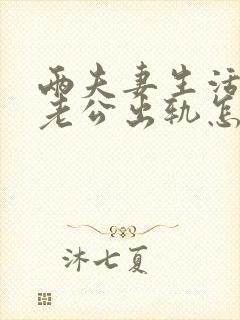 两夫妻生活
老公出轨怎
沐七夏